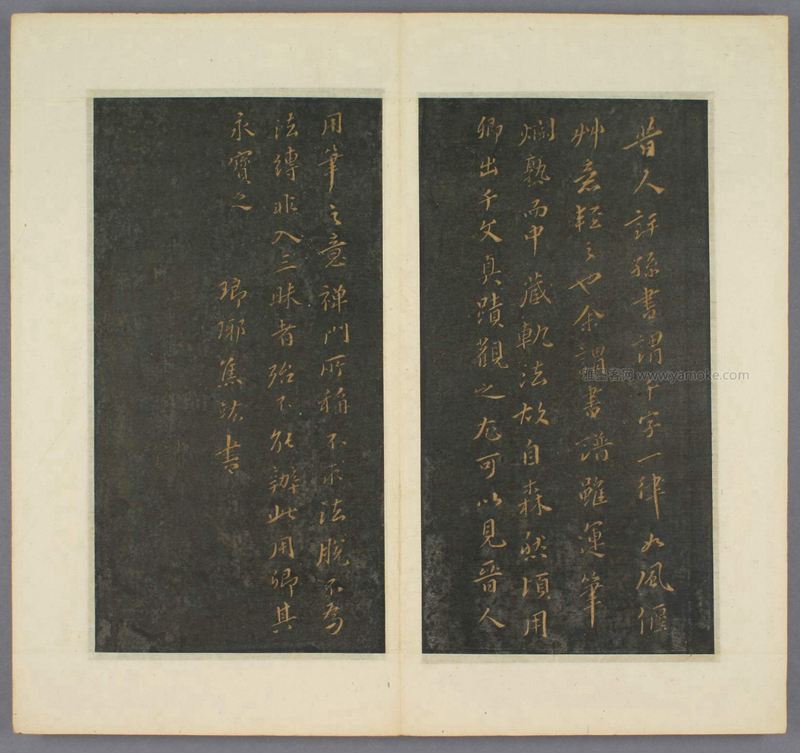 昔人評孫書謂千字一律如風偃
艸意輕之也余謂書譜雖運筆
爛熟而中藏軌法故自森然頃用
卿出千文真蹟觀之尤可以見晉人
用筆之意禪門所稱不求法脫不為
法縛非入三昧者殆不能辦此用卿其
永寶之　琅琊焦竑書
雅墨客网 www.yamoke.com